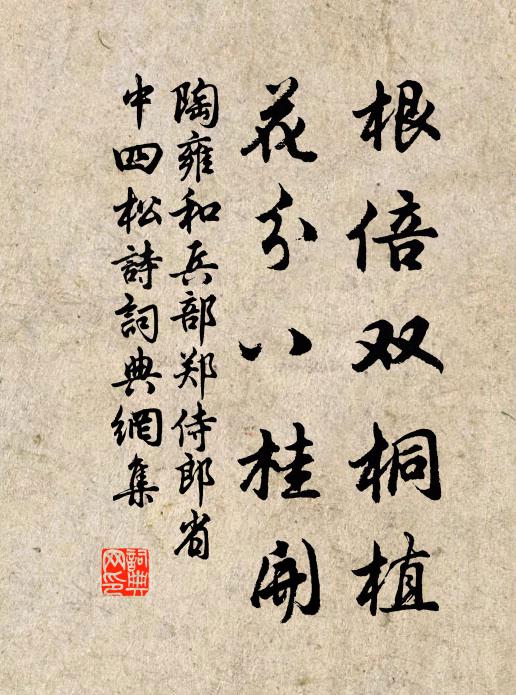 根倍双桐植
花分八桂开
陶雍和兵部郑侍郎省
中四松詩詞典網集
詞典
网印